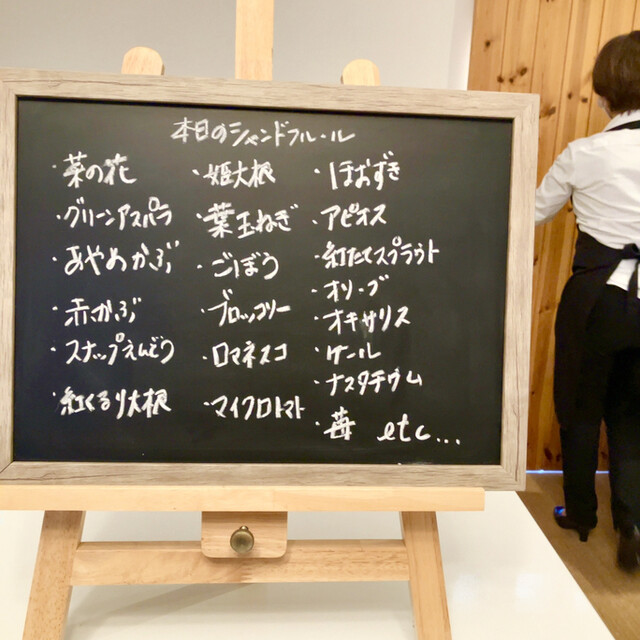 本日のシャンドフルール
・菜の花
・グリーンアスパラ
・あやめかぶ
・赤かぶ
・スナップえんどう
・紅くるり大根
・姫大根
・葉玉ねぎ
・ごぼう
・ブロッコリー
・ロマネスコ
・マイクロトマト
・ほおずき
・アピオス
・紅たでスプラウト
・オリーブ
・オキサリス
・ケール
・ナスタチウム
・苺 etc...